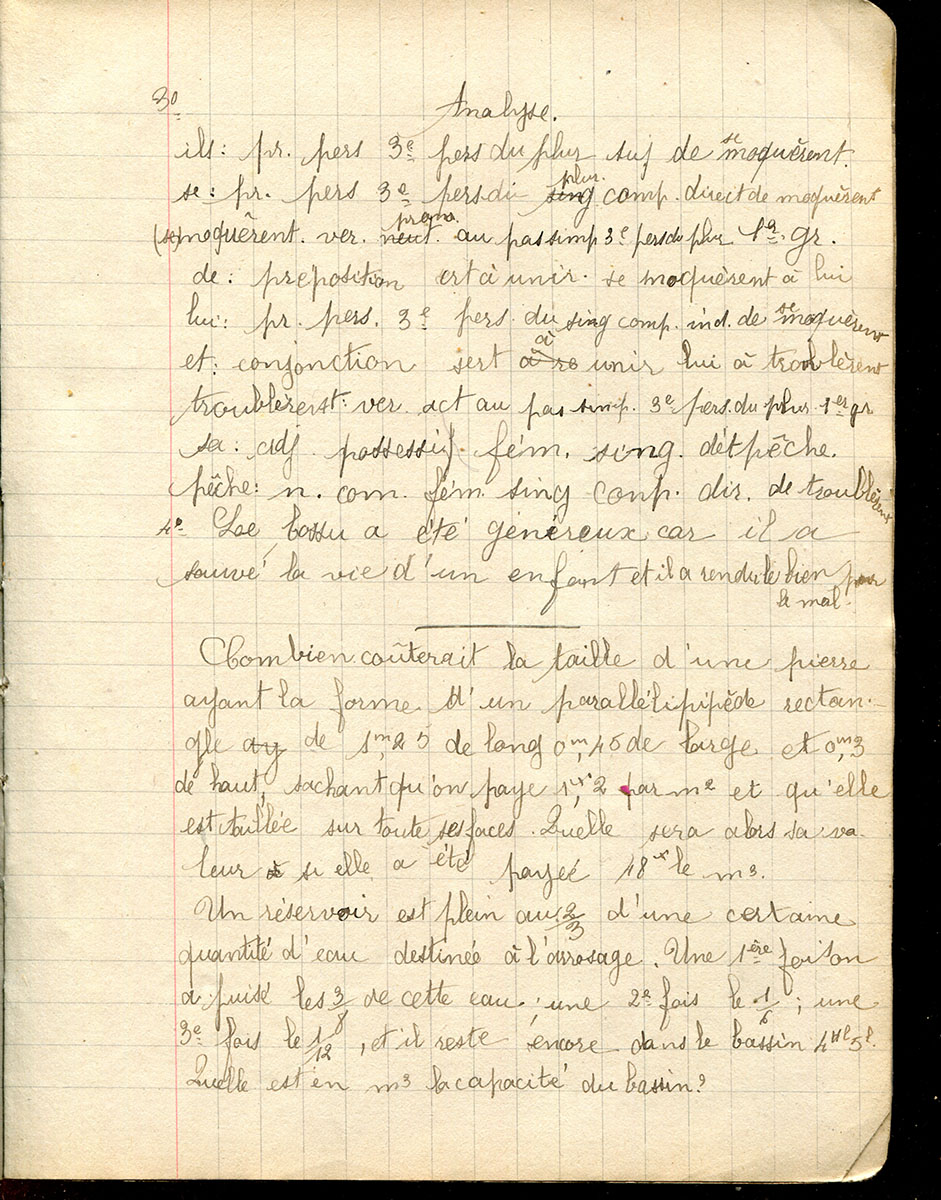 3° Analyse.
ils : pr. pers 3e pers du plur suj de se moquèrent.
se : pr. pers 3e pers du sing plur. comp. direct de moquèrent
(se) moquêrent. ver. neut. prono. au pas simp 3e pers du plur 1er gr.
de : préposition ert à unir se moquèrent à lui
lui : pr. pers. 3e pers. du sing comp. ind. de se moquèrent
et : conjonction sert à re à unir lui à troublèrent
troublèrent : ver. act au pas simp. 3e pers. du plur 1er gr
sa : adj possessif fém. sing. dét pêche.
pêche : n. com. fém. sing comp. dir. de troublèrent
4° Le bossu a été généreux car il a
sauvé la vie d'un enfant et il a rendu le bien pour
le mal.
Combien coûterait la taille d'une pierre
ayant la forme d'un parallélipipède rectan-
gle ay de 1m,25 de long 0m,45 de large et 0m,3
de haut, sachant qu'on paye 1fr,2 par m2 et qu'elle
est taillée sur toute ses faces. Quelle sera alors sa va-
leur si elle a été payée 18fr le m3.
Un réservoir est plein au 2/3 d'une certaine
quantité d'eau destinée à l'arrosage. Une 1ère fois on
a puisé les 3/8 de cette eau ; une 2e fois le 1/6 ; une
3e fois le 1/12, et il reste encore dans le bassin 4Hl 5l.
Quelle est en m3 la capacité du bassin?